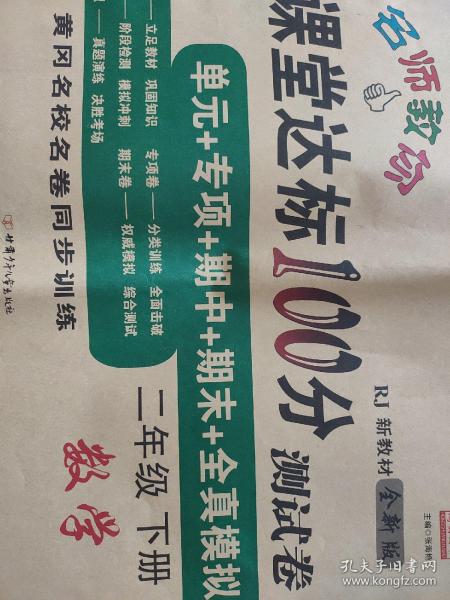 名师教你
课堂达标100分
测试卷
RJ 新教材 全新版
主编◎张海艳
单元+专项+期中+期末+全真模拟
立足教材 巩固知识 专项卷——分类训练 全面击破
阶段检测 模拟冲刺 期末卷——权威模拟 综合测试
真题演练 决胜考场
二年级 下册
数学
黄冈名校名卷同步训练
甘肃少年儿童出版社
孔夫子旧书网